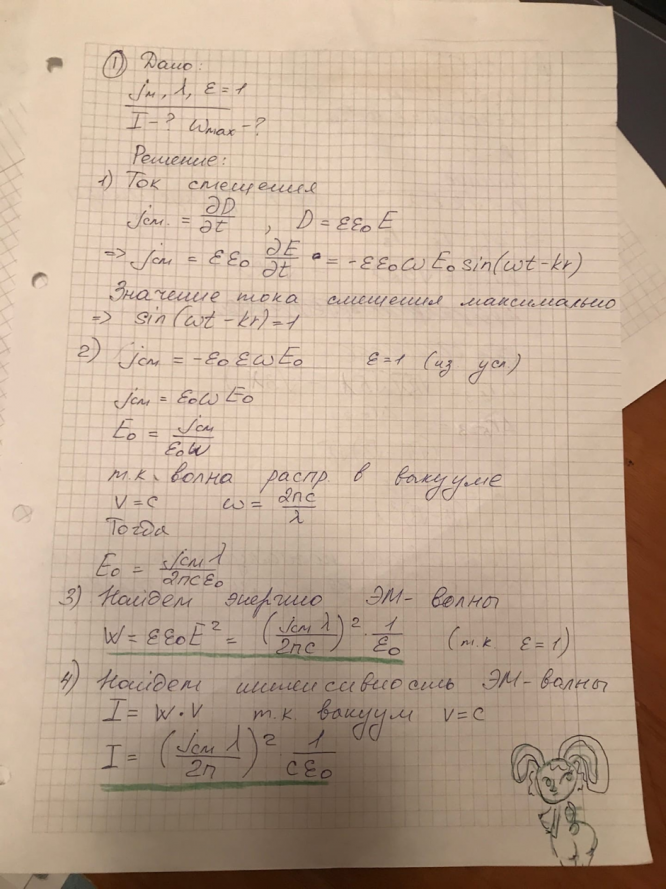 ① Дано:
jм, λ, ε = 1
I - ? wmax - ?
Решение:
1) Ток смещения
jсм. = ∂D/∂t , D = εε₀E
=> jсм = εε₀ ∂E/∂t = -εε₀ωE₀sin(ωt-kr)
Значение тока смещения максимально
=> sin(ωt-kr)=1
2) jсм = -ε₀εωE₀ ε=1 (из усл)
jсм = ε₀ωE₀
E₀ = jсм/ε₀ω
т.к. волна распр. в вакууме
v=c ω = 2πc/λ
Тогда
E₀ = jсм λ/2πcε₀
3) Найдем энергию ЭМ-волны
W = εε₀E² = (jсм λ/2πc)² · 1/ε₀ (т.к ε=1)
4) Найдем интенсивность ЭМ-волны
I = W·V т.к. вакуум v=c
I = (jсм λ/2π)² · 1/cε₀